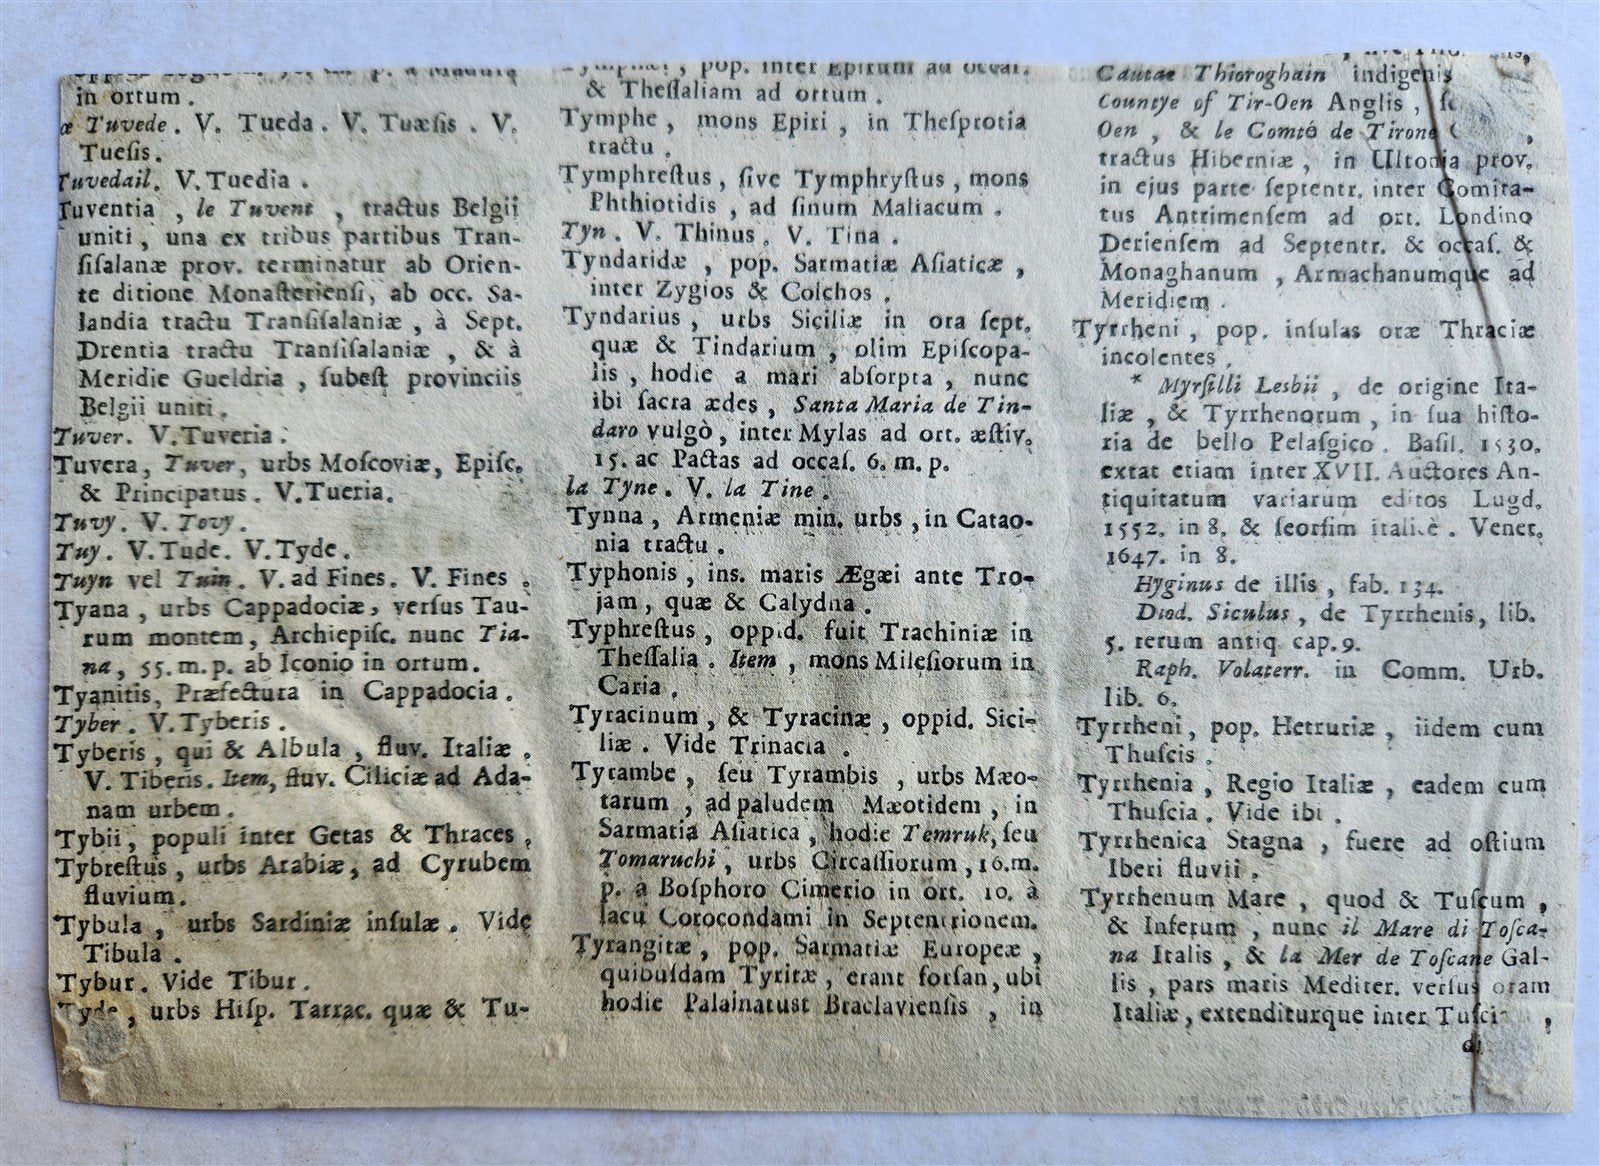 in ortum.
Tuvede. V. Tueda. V. Tuæsis. V.
Tuesis.
Tuvedail. V. Tuedia.
Tuventia, le Tuvent, tractus Belgii
uniti, una ex tribus partibus Tran-
sisalanæ prov. terminatur ab Orien-
te ditione Monasteriensi, ab occ. Sa-
landia tractu Transisalaniæ, à Sept.
Drentia tractu Transisalaniæ, & à
Meridie Gueldria, subest provinciis
Belgii uniti.
Tuver. V. Tuveria.
Tuvera, Tuver, urbs Moscoviæ, Episc.
& Principatus. V. Tueria.
Tuvy. V. Tovy.
Tuy. V. Tude. V. Tyde.
Tuyn vel Tuin. V. ad Fines. V. Fines.
Tyana, urbs Cappadociæ, versus Tau-
rum montem, Archiepisc. nunc Tia-
na, 55. m. p. ab Iconio in ortum.
Tyanitis, Præfectura in Cappadocia.
Tyber. V. Tyberis.
Tyberis, qui & Albula, fluv. Italiæ.
V. Tiberis. Item, fluv. Ciliciæ ad Ada-
nam urbem.
Tybii, populi inter Getas & Thraces.
Tybrestus, urbs Arabiæ, ad Cyrubem
fluvium.
Tybula, urbs Sardiniæ insulæ. Vide
Tibula.
Tybur. Vide Tibur.
Tyde, urbs Hisp. Tarrac. quæ & Tu-
pop. inter Epirum ad occas.
& Thessaliam ad ortum.
Tymphe, mons Epiri, in Thesprotia
tractu.
Tymphrestus, sive Tymphrystus, mons
Phthiotidis, ad sinum Maliacum.
Tyn. V. Thinus. V. Tina.
Tyndaridæ, pop. Sarmatiæ Asiaticæ,
inter Zygios & Colchos.
Tyndarius, urbs Siciliæ in ora sept.
quæ & Tindarium, olim Episcopa-
lis, hodie a mari absorpta, nunc
ibi sacra ædes, Santa Maria de Tin-
daro vulgò, inter Mylas ad ort. æstiv.
15. ac Pactas ad occas. 6. m. p.
la Tyne. V. la Tine.
Tynna, Armeniæ min. urbs, in Catao-
nia tractu.
Typhonis, ins. maris Ægæi ante Tro-
jam, quæ & Calydna.
Typhrestus, oppid. fuit Trachiniæ in
Thessalia. Item, mons Milesiorum in
Caria.
Tyracinum, & Tyracinæ, oppid. Sici-
liæ. Vide Trinacia.
Tyrambe, seu Tyrambis, urbs Mæo-
tarum, ad paludem Mæotidem, in
Sarmatia Asiatica, hodie Temruk, seu
Tomaruchi, urbs Circassiorum, 16. m.
p. a Bosphoro Cimerio in ort. 10. à
lacu Corocondami in Septentrionem.
Tyrangitæ, pop. Sarmatiæ Europeæ,
quibusdam Tyritæ, erant forsan, ubi
hodie Palainatust Braclaviensis, in
Cautae Thioroghain indigenis
Countye of Tir-Oen Anglis,
Oen, & le Comté de Tirone
tractus Hiberniæ, in Ultonia prov.
in ejus parte septentr. inter Comita-
tus Antrimensem ad ort. Londino
Deriensem ad Septentr. & occas. &
Monaghanum, Armachanumque ad
Meridiem.
Tyrrheni, pop. insulas oræ Thraciæ
incolentes.
* Myrsilli Lesbii, de origine Ita-
liæ, & Tyrrhenorum, in sua histo-
ria de bello Pelasgico. Basil. 1530.
extat etiam inter XVII. Auctores An-
tiquitatum variarum editos Lugd.
1552. in 8. & seorsim italicè. Venet.
1647. in 8.
Hyginus de illis, fab. 134.
Diod. Siculus, de Tyrrhenis, lib.
5. rerum antiq. cap. 9.
Raph. Volaterr. in Comm. Urb.
lib. 6.
Tyrrheni, pop. Hetruriæ, iidem cum
Thuscis.
Tyrrhenia, Regio Italiæ, eadem cum
Thuscia. Vide ibi.
Tyrrhenica Stagna, fuere ad ostium
Iberi fluvii.
Tyrrhenum Mare, quod & Tuscum,
& Inferum, nunc il Mare di Tosca-
na Italis, & la Mer de Toscane Gal-
lis, pars maris Mediter. versus oram
Italiæ, extenditurque inter